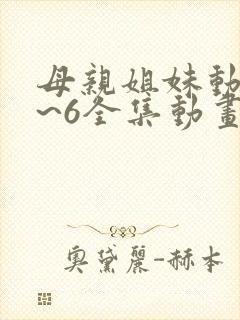 母親姐妹動
~6全集動畫
奧黛麗-赫本